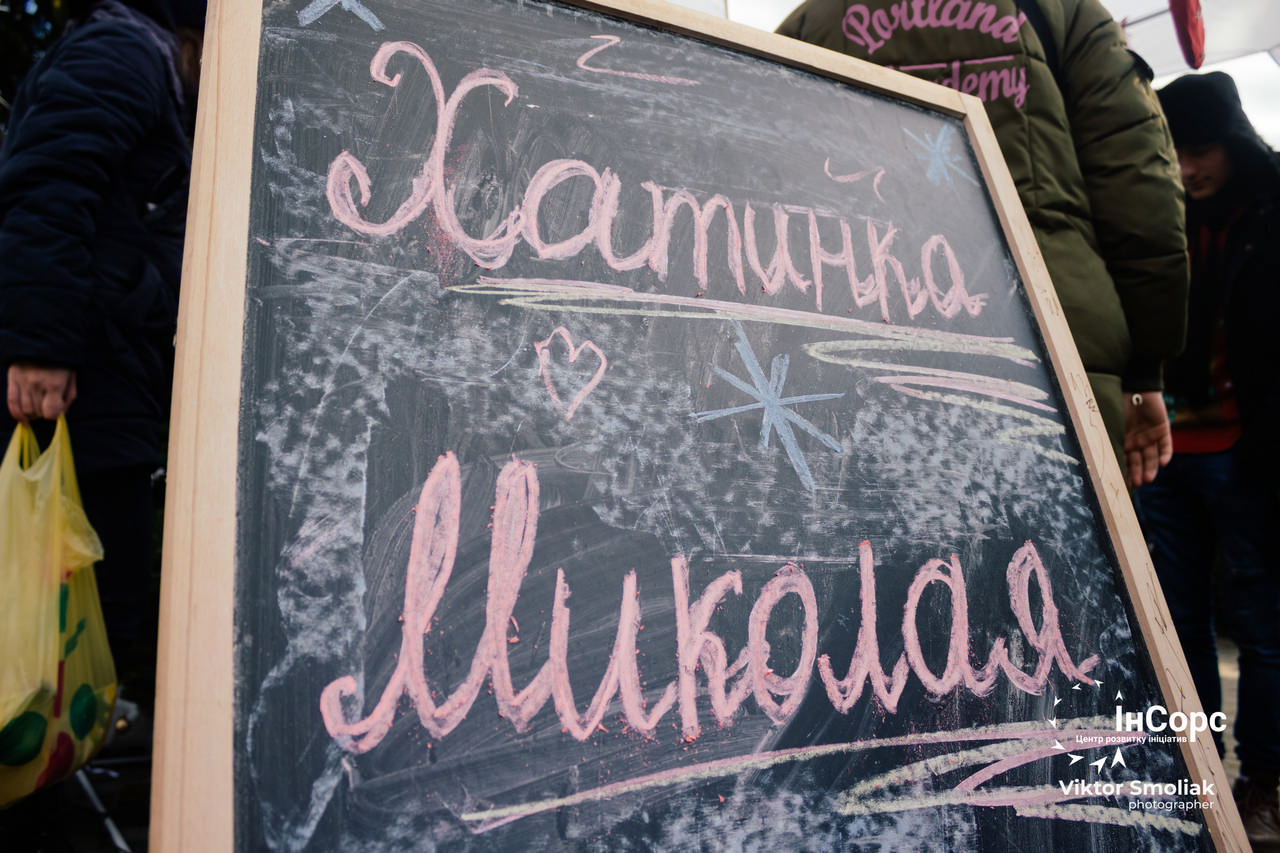 Portland
Хатинка
Миколая
ІнСорс
Центр розвитку ініціатив
Viktor Smoliak
photographer